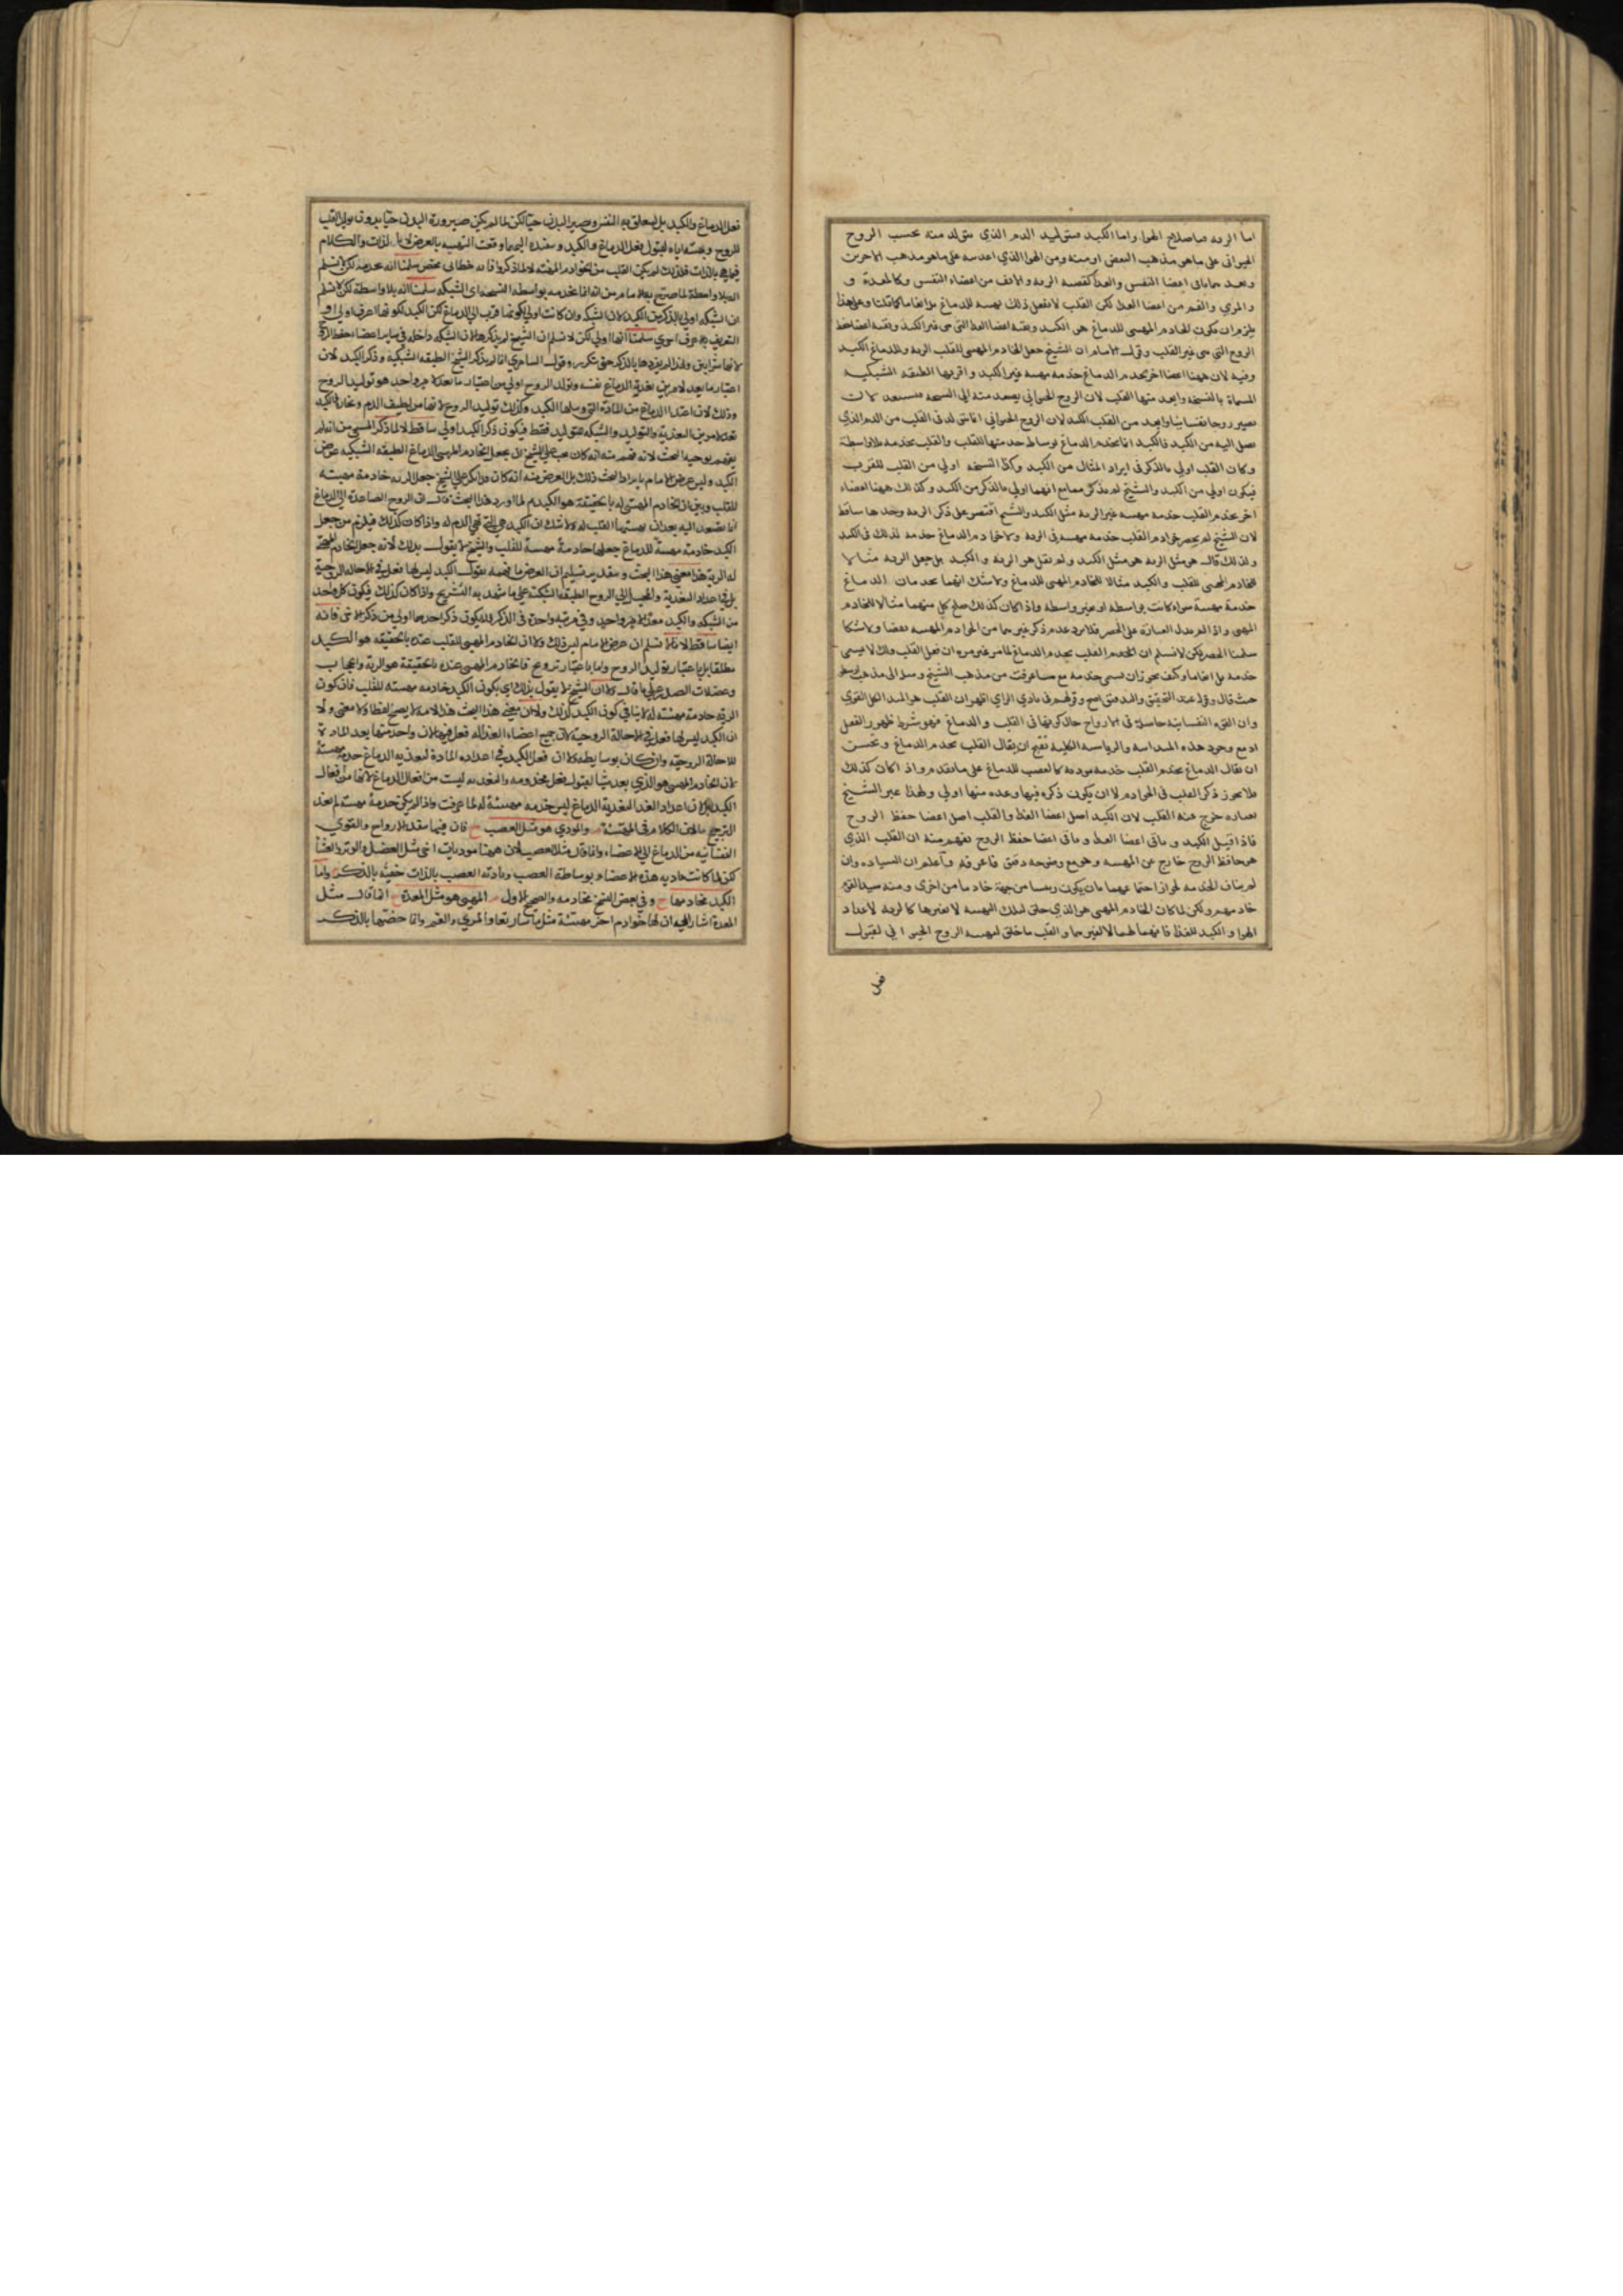 اما الريه فباصلاح الهوا واما الكبد فبتوليد الدم الذي يتولد منه بحسب الروح
الحيواني على ما هو مذهب البعض او منه ومن الهوا الذي على ما هو مذهب الاخرين
اعضا النفس والغذا كقصبه الريه والانف من اعضاء النفس وكالمعدة و
والمري والفم من اعضا الغذا لكن القلب لا يفعل ذلك
يلزم ان يكون الخادم المهيي للدماغ هو الكبد وبقيه اعضا الغذا التي هي غير الكبد وبقيه اعضا حفظ
الروح التي هي غير القلب وقول الامام ان الشيخ جعل الخادم المهيي للقلب الريه وللدماغ الكبد
وفيه لان ههنا اعضا اخر يخدم الدماغ خدمه مهييه غير الكبد واقربها الطبقه الشبكيه
وابعد منها القلب لان الروح الحيواني يصعد منه الي
يصير روحا نفسانيا وابعد من القلب الكبد لان الروح الحيواني انما يتولد في القلب من الدم الذي
يصل اليه من الكبد فالكبد انما يخدم الدماغ بوساطه خدمتها للقلب والقلب يخدمه بلا واسطة
وكان القلب اولي بالذكر في ايراد المثال من الكبد وكذا اولي من القلب للقرب
فيكون اولي من الكبد والشيخ لم يذكر مع انهما اولي بالذكر من الكبد وكذلك ههنا اعضاء
اخر يخدم القلب خدمه مهييه غير الريه مثل الكبد والشيخ اقتصر على ذكر الريه وحدها ساقط
لان الشيخ لم يحصر خوادم القلب خدمه مهييه في الريه ولا خوادم الدماغ خدمه لذلك في الكبد
ولذلك قال هو مثل الريه هو مثل الكبد ولم يقل هو الريه والكبد بل جعل الريه مثالا
للخادم المهيي للقلب والكبد مثالا للخادم المهيي للدماغ ولا شك انهما يخدمان الدماغ
خدمة مهيية سواء كانت بواسطه او بغير واسطه واذا كان كذلك صلح كل منهما مثالا للخادم
المهيي واذا لم العبارة على الحصر فلا يرد عدم ذكر غيرهما من الخوادم المهييه نقضا ولا شكا
سلمنا الحصر لكن لا نسلم ان القلب يخدم الدماغ لما مر غير مره ان فعل القلب ذلك لا يسمى
خدمه بل وكيف يجوز ان يسمى خدمه مع ما عرفت من مذهب الشيخ
حيث قال وقوله عند التحقيق والتدقيق اصح وقولهم في بادي الراي اظهر ان القلب هو المبدا لكل القوي
وان القوه النفسانيه حاصله في الارواح حال كونها في القلب والدماغ فهو شرط ظهور الفعل
اذ مع وجود هذه والرياسه الكليه يقبح ان يقال القلب يخدم الدماغ ويحسن
ان يقال الدماغ يخدم القلب خدمه مودية كالعصب للدماغ على ما تقدم واذا كان كذلك
فلا يجوز ذكر القلب في الخوادم لا ان يكون ذكره فيها وعده منها اولي ولهذا عبر الشيخ
بعباره خرج عنه القلب لان الكبد اصل اعضا الغذا والقلب اصل اعضا حفظ الروح
فاذا قيل الكبد وباقي اعضا الغذا وباقي اعضا حفظ الروح يفهم منه ان القلب الذي
هو حافظ الروح خارج عن المهييه وهو مع وضوحه دقيق فاعرفه واعلم ان السياده وان
لم يناف الخدمه لجواز اجتماعهما بان يكون رييسا من جهة خادما من اخرى ومنه سيد القوم
خادمهم ولكن لما كان الخادم المهيي هو الذي خلق لتلك التهييه لا لغيرها كالريه لاعداد
الهوا والكبد للغذا فانهما لا لغيرهما والقلب ما خلق لتهييه الروح الحيواني لقبول
فعل
فعل الدماغ والكبد بل ليتعلق به النفس ويصير البدن حيا لكن لما لم يكن صيرورة البدن حيا بدون توليد القلب
للروح وتهيته اياه لقبول فعل الدماغ والكبد اليهما وقعت التهييه بالعرض لا بالذات والكلام
فيما هي بالذات فلذلك لم يكن القلب من الخوادم المهيئه لا لما ذكروا فانه خطابي محض سلمنا انه يخدمه لكن لا نسلم
انه بلا واسطة لما صرح به الامام من انه انما يخدمه بواسطه الشبكه سلمنا انه بلا واسطة لكن لا نسلم
ان الشبكه اولي بالذكر من الكبد لان الشبكه وان كانت اولي لكونها اقرب الي الدماغ لكن الكبد لكونها اعرف اولي اذ
التعريف بالاعرف احري سلمنا انها اولي لكن لا نسلم ان الشيخ لم يذكرها لان الشبكه داخله في ساير اعضاء حفظ الروح
لانها شرايين ولهذا لم يفردها بالذكر حتى يتكرر وقول السامري انما لم يذكر الشيخ الطبقه الشبكيه وذكر الكبد لان
اعتبار ما يعد لامرين تغذية الدماغ نفسه وتولد الروح اولي من اعتبار ما يعد لامر واحد هو توليد الروح
وذلك لان اغتذا الدماغ من المادة التي الكبد وكذلك توليد الروح لانها من لطيف الدم وبخاره فالكبد
تعد لامرين التغذية والتوليد والشبكه للتوليد فقط فيكون ذكر الكبد اولي ساقط لا لما ذكر المسيحي من انه لم
يفهم توجيه البحث لانه فهم منه انه كان يجب على الشيخ ان يجعل الخادم المهيي للدماغ الطبقه الشبكيه عوض
الكبد وليس غرض الامام بايراد البحث ذلك بل الغرض منه انه كان على الشيخ جعل الريه خادمة مهيئه
للقلب وبين ان الخادم المهيئ له بالحقيقة هو الكبد ثم لما اورد هذا البحث قال ان الروح الصاعدة الى الدماغ
انما تصعد اليه بعد ان يهيئها القلب له ولا شك ان الكبد هي التي تهيئ الدم له واذا كان كذلك فيلزم من جعل
الكبد خادمة مهيئة للدماغ جعلها خادمة مهيئة للقلب والشيخ لا يقول بذلك لانه جعل الخادم المهيئ
له الريه هذا معنى هذا البحث وبتقدير تسليم ان الغرض ما فهمه نقول الكبد ليس لها فعل في الاحاله الروحية
بل في اعداد التغذية والمحيل الى الروح الطبقة الشبكية على ما شهد به التشريح واذا كان كذلك فيكون كل واحد
من الشبكه والكبد معدا لامر واحد وفي مرتبه واحدة في الذكر فلا يكون ذكر احدهما اولي من ذكر الاخرى فانه
ايضا ساقط لانا لا نسلم ان غرض الامام ليس ذلك ولا ان الخادم المهيي للقلب عنده بالحقيقه هو الكبد
مطلقا بل باعتبار توليد الروح واما باعتبار ترويح فالخادم المهيي عنده بالحقيقة هو الريه والحجاب
وعضلات الصدر على ما قال ولا ان الشيخ لا يقول بذلك اي بكون الكبد خادمه مهيئه للقلب فان كون
الريه خادمة مهيئه له لا ينافي كون الكبد كذلك ولا ان معنى هذا البحث هذا لانه لا يصح لفظا ولا معنى ولا
ان الكبد ليس لها فعل في الاحالة الروحية لان جميع اعضاء الغذا له فعل فيها لان واحد منها يعد المادة
للاحالة الروحيه وان كان بوسايط ولا ان فعل الكبد في اعداده المادة لتغذيه الدماغ خدمه مهيئة
لان الخادم المهيي هو الذي يعد شيا لقبول فعل مخدومه والتغذيه ليست من افعال الدماغ لانها من افعال
الكبد فلا اعداد الغذا لتغذية الدماغ ليس خدمه مهيئة له لما عرفت واذا لم يكن خدمة مهيئه لم يفد
الترجيح ما لان الكلام في المهيئة م والمودي هو مثل العصب ح فان فيها تنفذ الارواح والقوي
النفسانيه من الدماغ الي الاعضاء وانما قال مثل العصب لان ههنا موديات اخر مثل العضل والوتر والغشا
لكن لما كانت تاديه هذه الاعضاء بوساطة العصب وتادية العصب بالذات خصه بالذكر م واما
الكبد فخادمها ح وفي بعض النسخ فخادمه والصحيح الاول م المهيي هو مثل المعدة ح انما قال مثل
المعدة اشارة الي ان لها خوادم اخر مهيئة مثل ماساريقا والمري والفم وانما خصها بالذكر